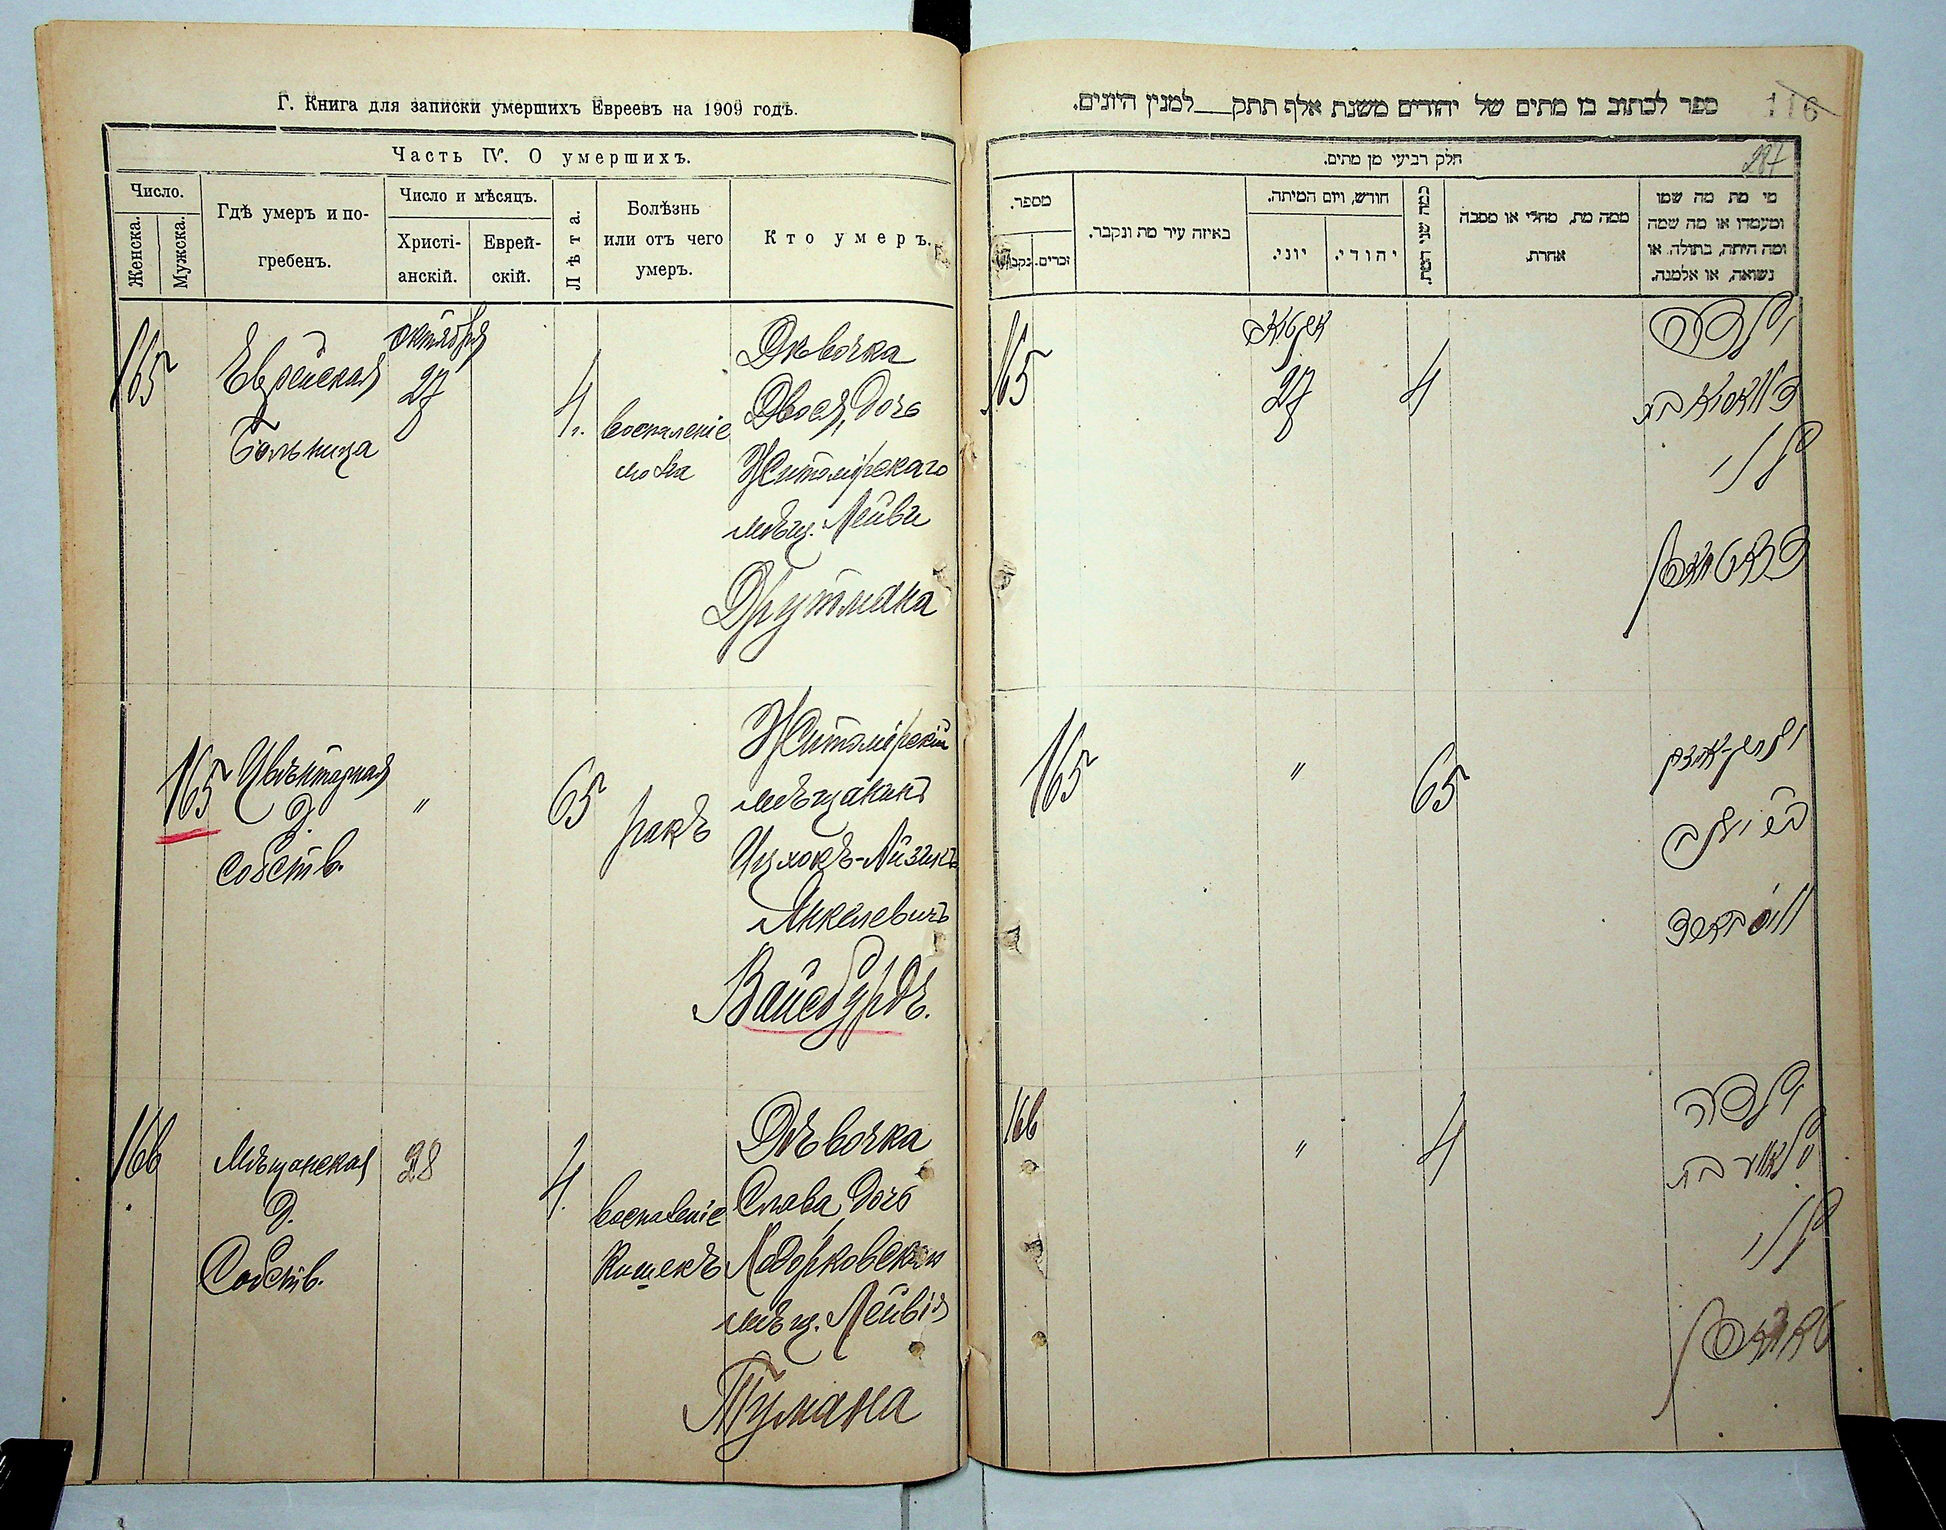 Г. Книга для записки умершихъ Евреевъ на 1909 годъ.
Часть IV. О умершихъ.
Число.
Женска.
Мужска.
Гдѣ умеръ и по-
гребенъ.
Число и мѣсяцъ.
Христі-
анскій.
Еврей-
скій.
Лѣта.
Болѣзнь
или отъ чего
умеръ.
Кто умеръ.
165
Еврейская
Больница
октября
27
4.
воспаленіе
мозга
Дѣвочка
Двося, дочь
Житомірскаго
мѣщ. Лейви
Друтмана
165
д.
собств.
"
65
ракъ
Житомірскій
мѣщанинъ
Ицхокъ-Айзикъ
Янкелевичъ
Вайсбурдъ.
166
Мѣщанская
д.
Собств.
28
4.
воспаленіе
Кишекъ
Дѣвочка
Слава, дочь
Ходорковскаго
мѣщ. Лейви
Тумана
ספר לכתוב בו מתים של יהודים משנת אלף תתק___למנין היונים.
116
287
חלק רביעי מן מתים.
מספר.
נקבות
זכרים.
באיזה עיר מת ונקבר.
חודש, ויום המיתה.
יוני.
יהודי.
כמה שני המת.
ממה מת, מחלי או מסבה
אחרת.
מי מת מה שמו
ומעמדו או מה שמה
ומה היתה, בתולה, או
נשואה, או אלמנה.
165
27
4
ילדה
בת
לוי
165
"
65
יצחק-אייזיק
ב"ר יעקב
ווייסבורד
166
"
4
ילדה
סלאווע בת
לוי
טומאן